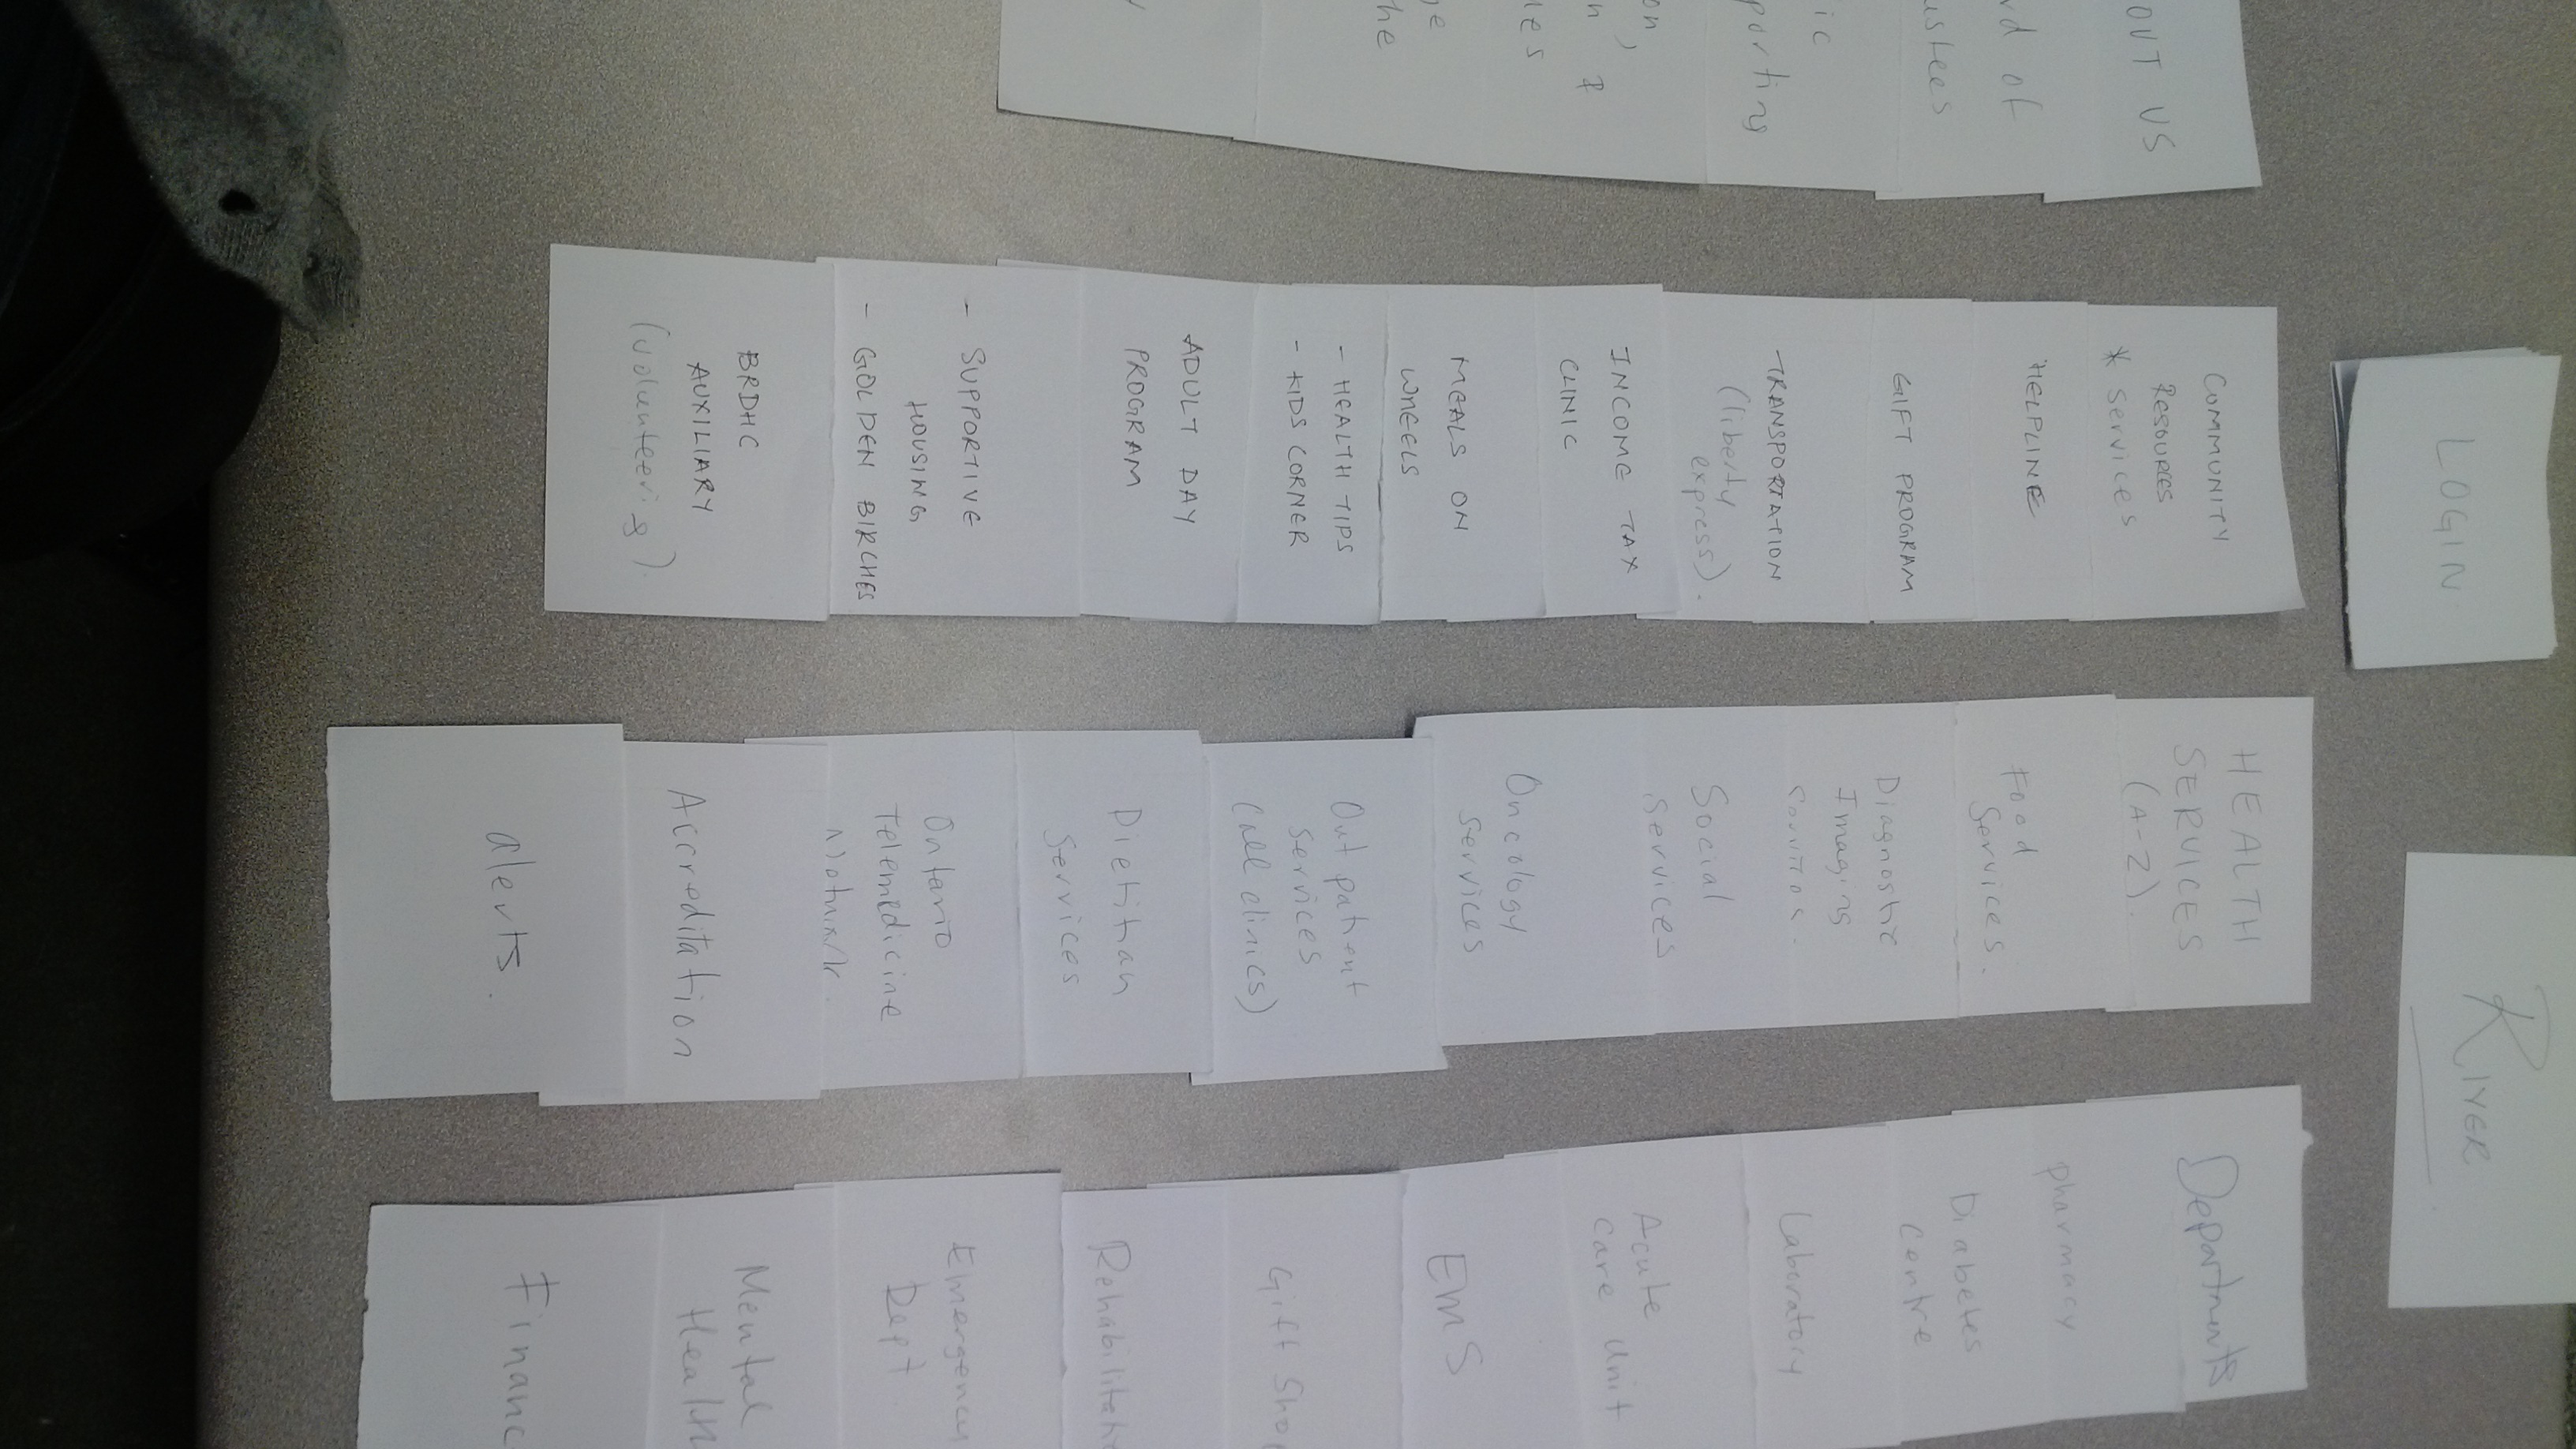 LOGIN
RIVER
OUT US
of
ustees
ic
porting
on,
n &
les
ge
he
COMMUNITY
RESOURCES
* Services
HELPLINE
GIFT PROGRAM
TRANSPORTATION
(liberty
express).
INCOME TAX
CLINIC
MEALS ON
WHEELS
- HEALTH TIPS
- KIDS CORNER
ADULT DAY
PROGRAM
- SUPPORTIVE
HOUSING
- GOLDEN BIRCHES
BRDHC
AUXILIARY
(volunteering).
HEALTH
SERVICES
(A-Z).
Food
Services.
Diagnostic
Imaging
Social
Services
Oncology
Services
Outpatient
Services
(all clinics)
Dietitian
Services
Ontario
Telemedicine
Network.
Accreditation
alerts.
Departments
pharmacy
Diabetes
centre
Laboratory
Acute
care unit
EMS
Gift Sho
Rehabilitati
Emergency
Dept
Mental
Health
Financ